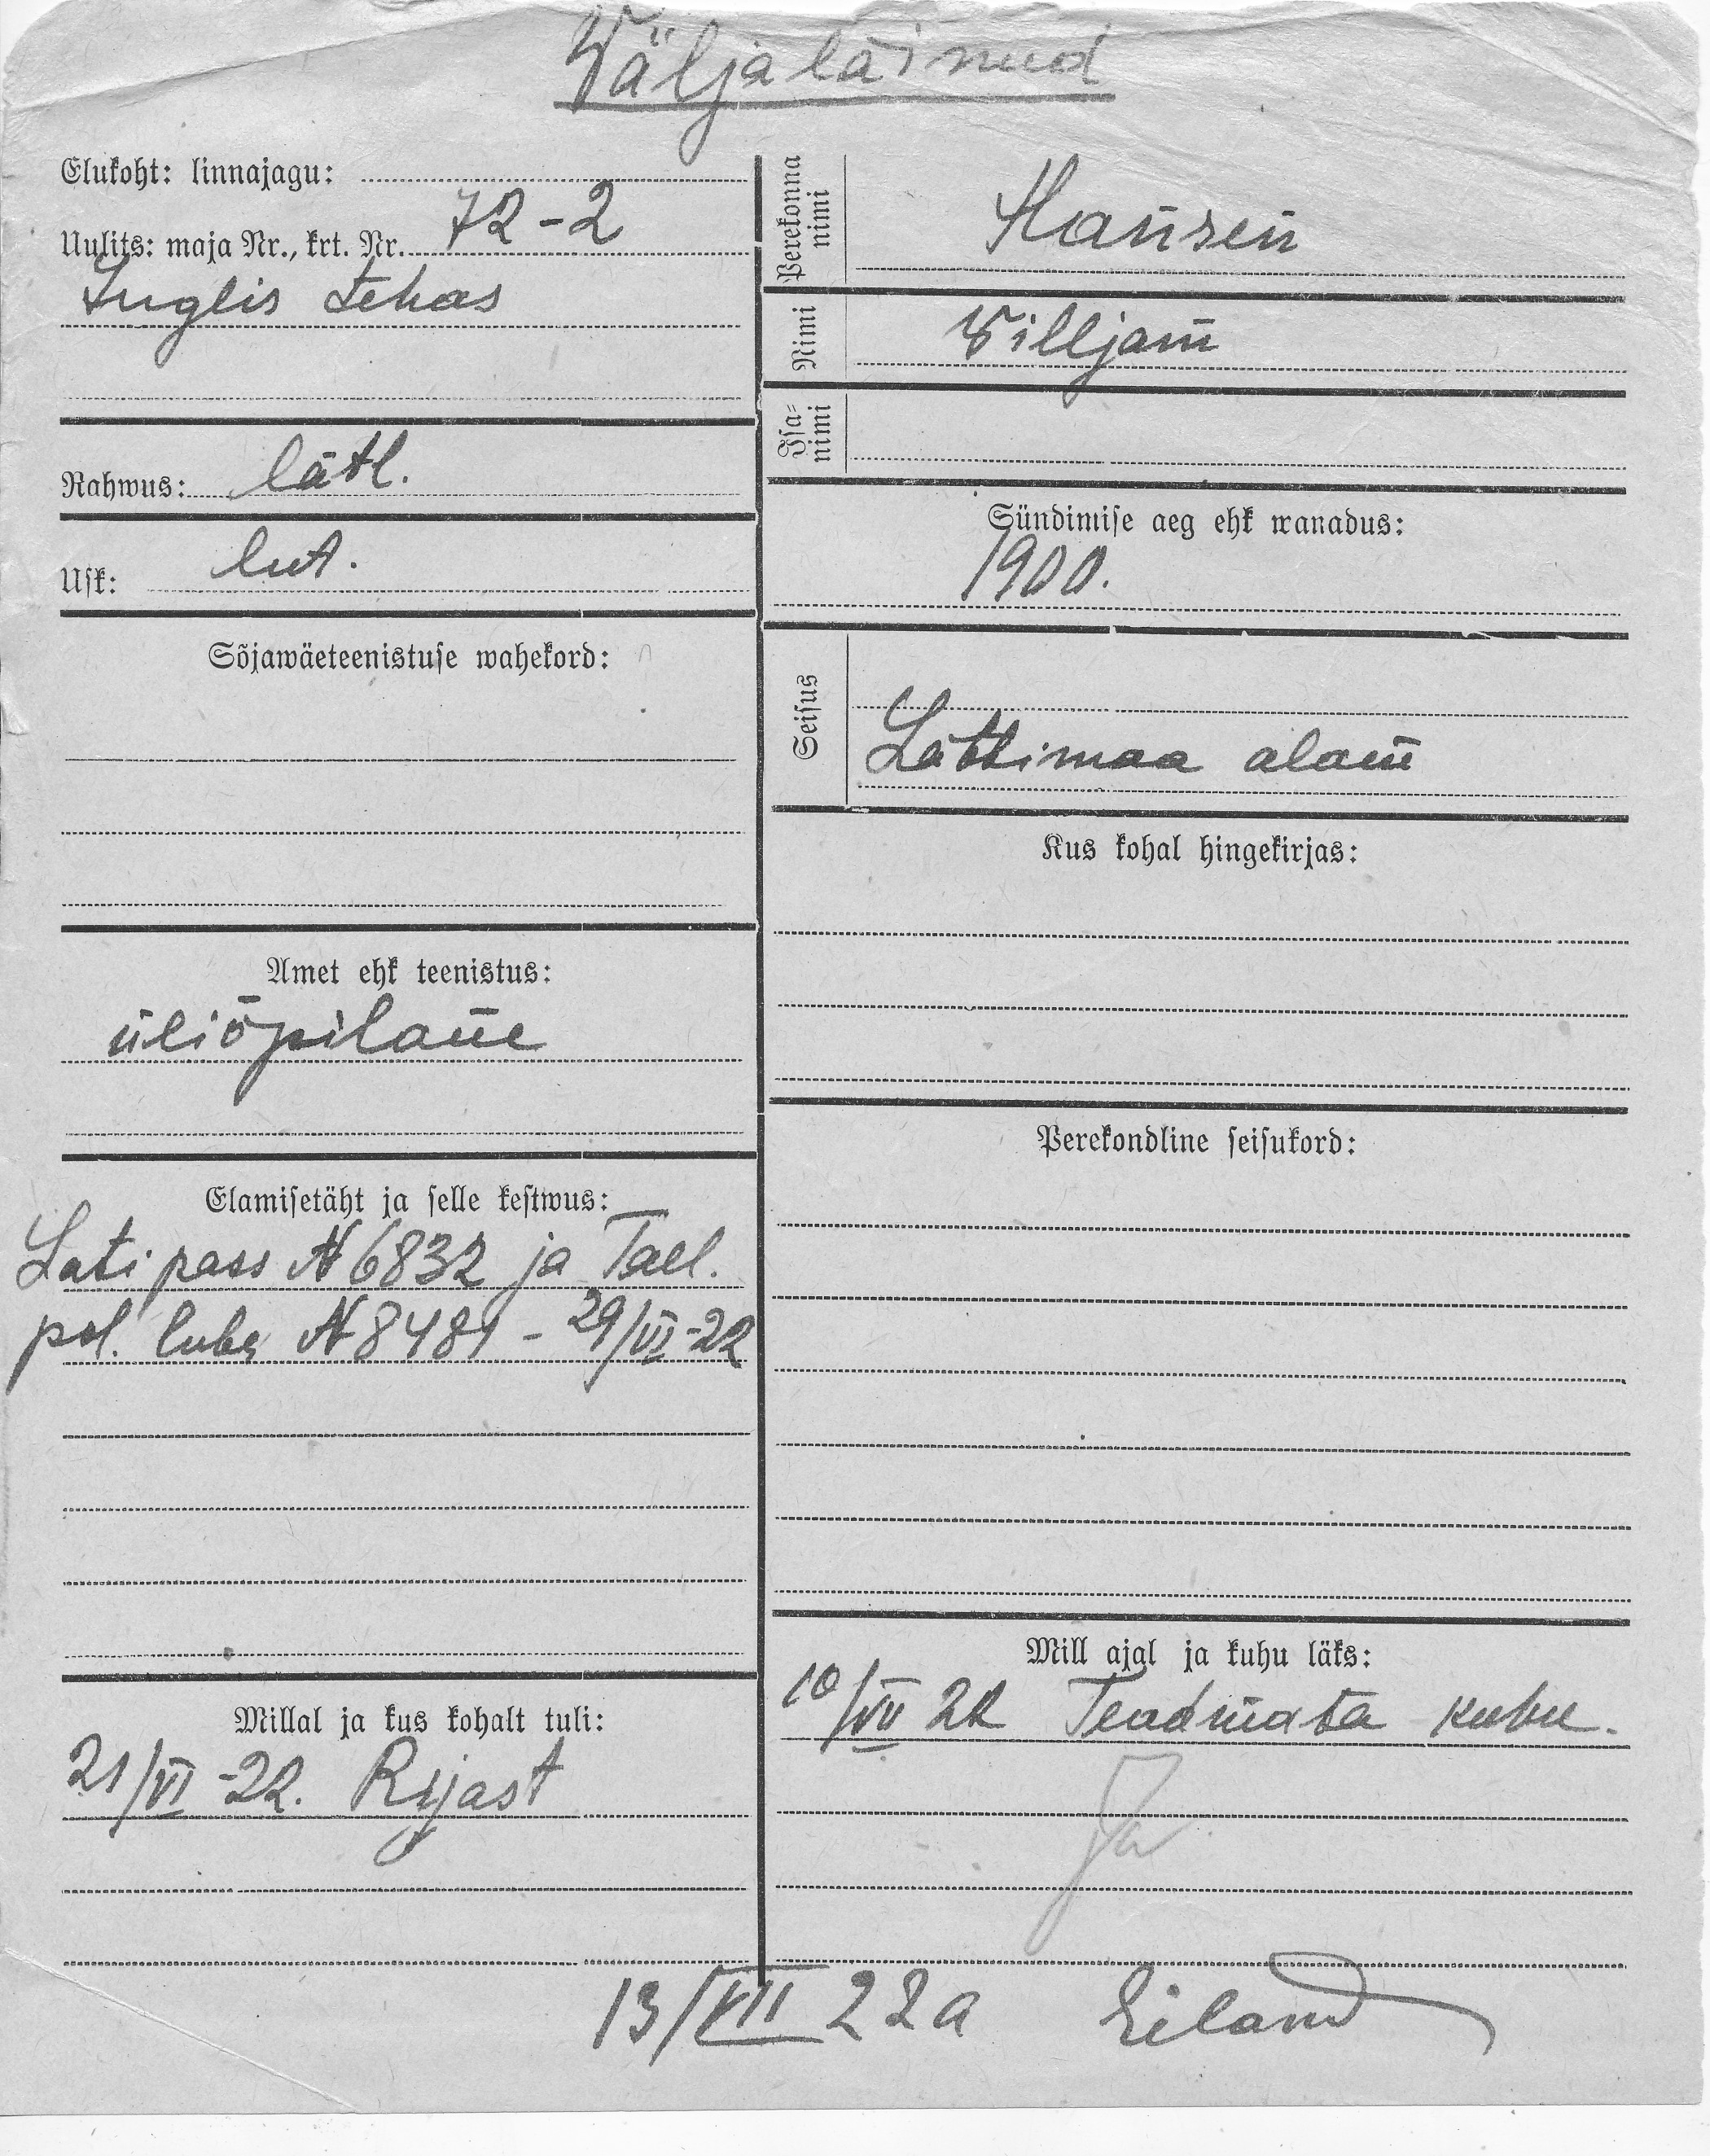 Wäljaläinud
Elukoht: linnajagu:
Uulits: maja Nr., krt. Nr. 72-2
Inglis tehas
Rahwus: lätl.
Usk: lut.
Sõjawäeteenistuse wahekord:
Amet ehk teenistus:
üliõpilane
Elamisetäht ja selle kestwus:
Lati pass N 6832 ja Tall.
pol. luba N 8481 - 29/VI-22
Millal ja kus kohalt tuli:
21/VI-22. Rijast
Perekonna
nimi
Hansen
Nimi Villjam
Isa-
nimi
Sündimise aeg ehk wanadus:
1900.
Seisus
Lättimaa alam
Kus kohal hingekirjas:
Perekondline seisukord:
Mill ajal ja kuhu läks:
10/VII 22 Teadmata kuhu.
13/VII 22a Eiland